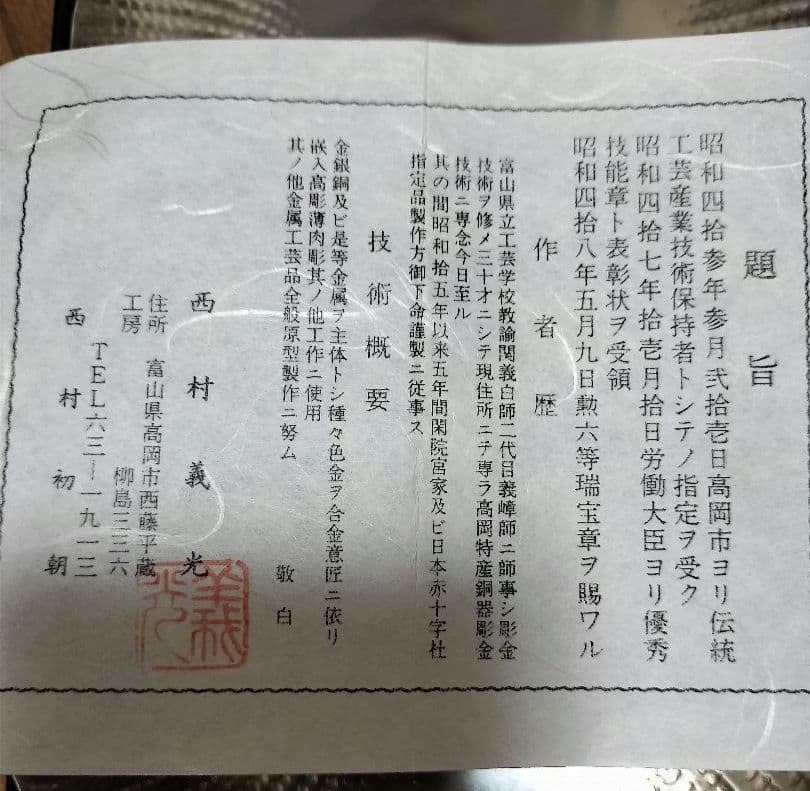 題旨
昭和四拾参年参月弐拾壱日高岡市ヨリ伝統
工芸産業技術保持者トシテノ指定ヲ受ク
昭和四拾七年拾壱月拾日労働大臣ヨリ優秀
技能章ト表彰状ヲ受領
昭和四拾八年五月九日勲六等瑞宝章ヲ賜ワル
作者歴
富山県立工芸学校教諭関義白師二代目義嶂師ニ師事シ彫金
技術ヲ修メ三十才ニシテ現住所ニテ専ラ高岡特産銅器彫金
技術ニ専念今日至ル
其の間昭和拾五年以来五年間閑院宮家及ビ日本赤十字社
指定品製作方御下命謹製ニ従事ス
技術概要
金銀銅及ビ是等金属ヲ主体トシ種々色金ヲ合金意匠ニ依リ
嵌入高彫薄肉彫其ノ他工作ニ使用
其ノ他金属工芸品全般原型製作ニ努ム
敬白
西村義光
住所 富山県高岡市西藤平蔵
工房 柳島三三六
TEL六三ー一九一三
西村初朝
義光